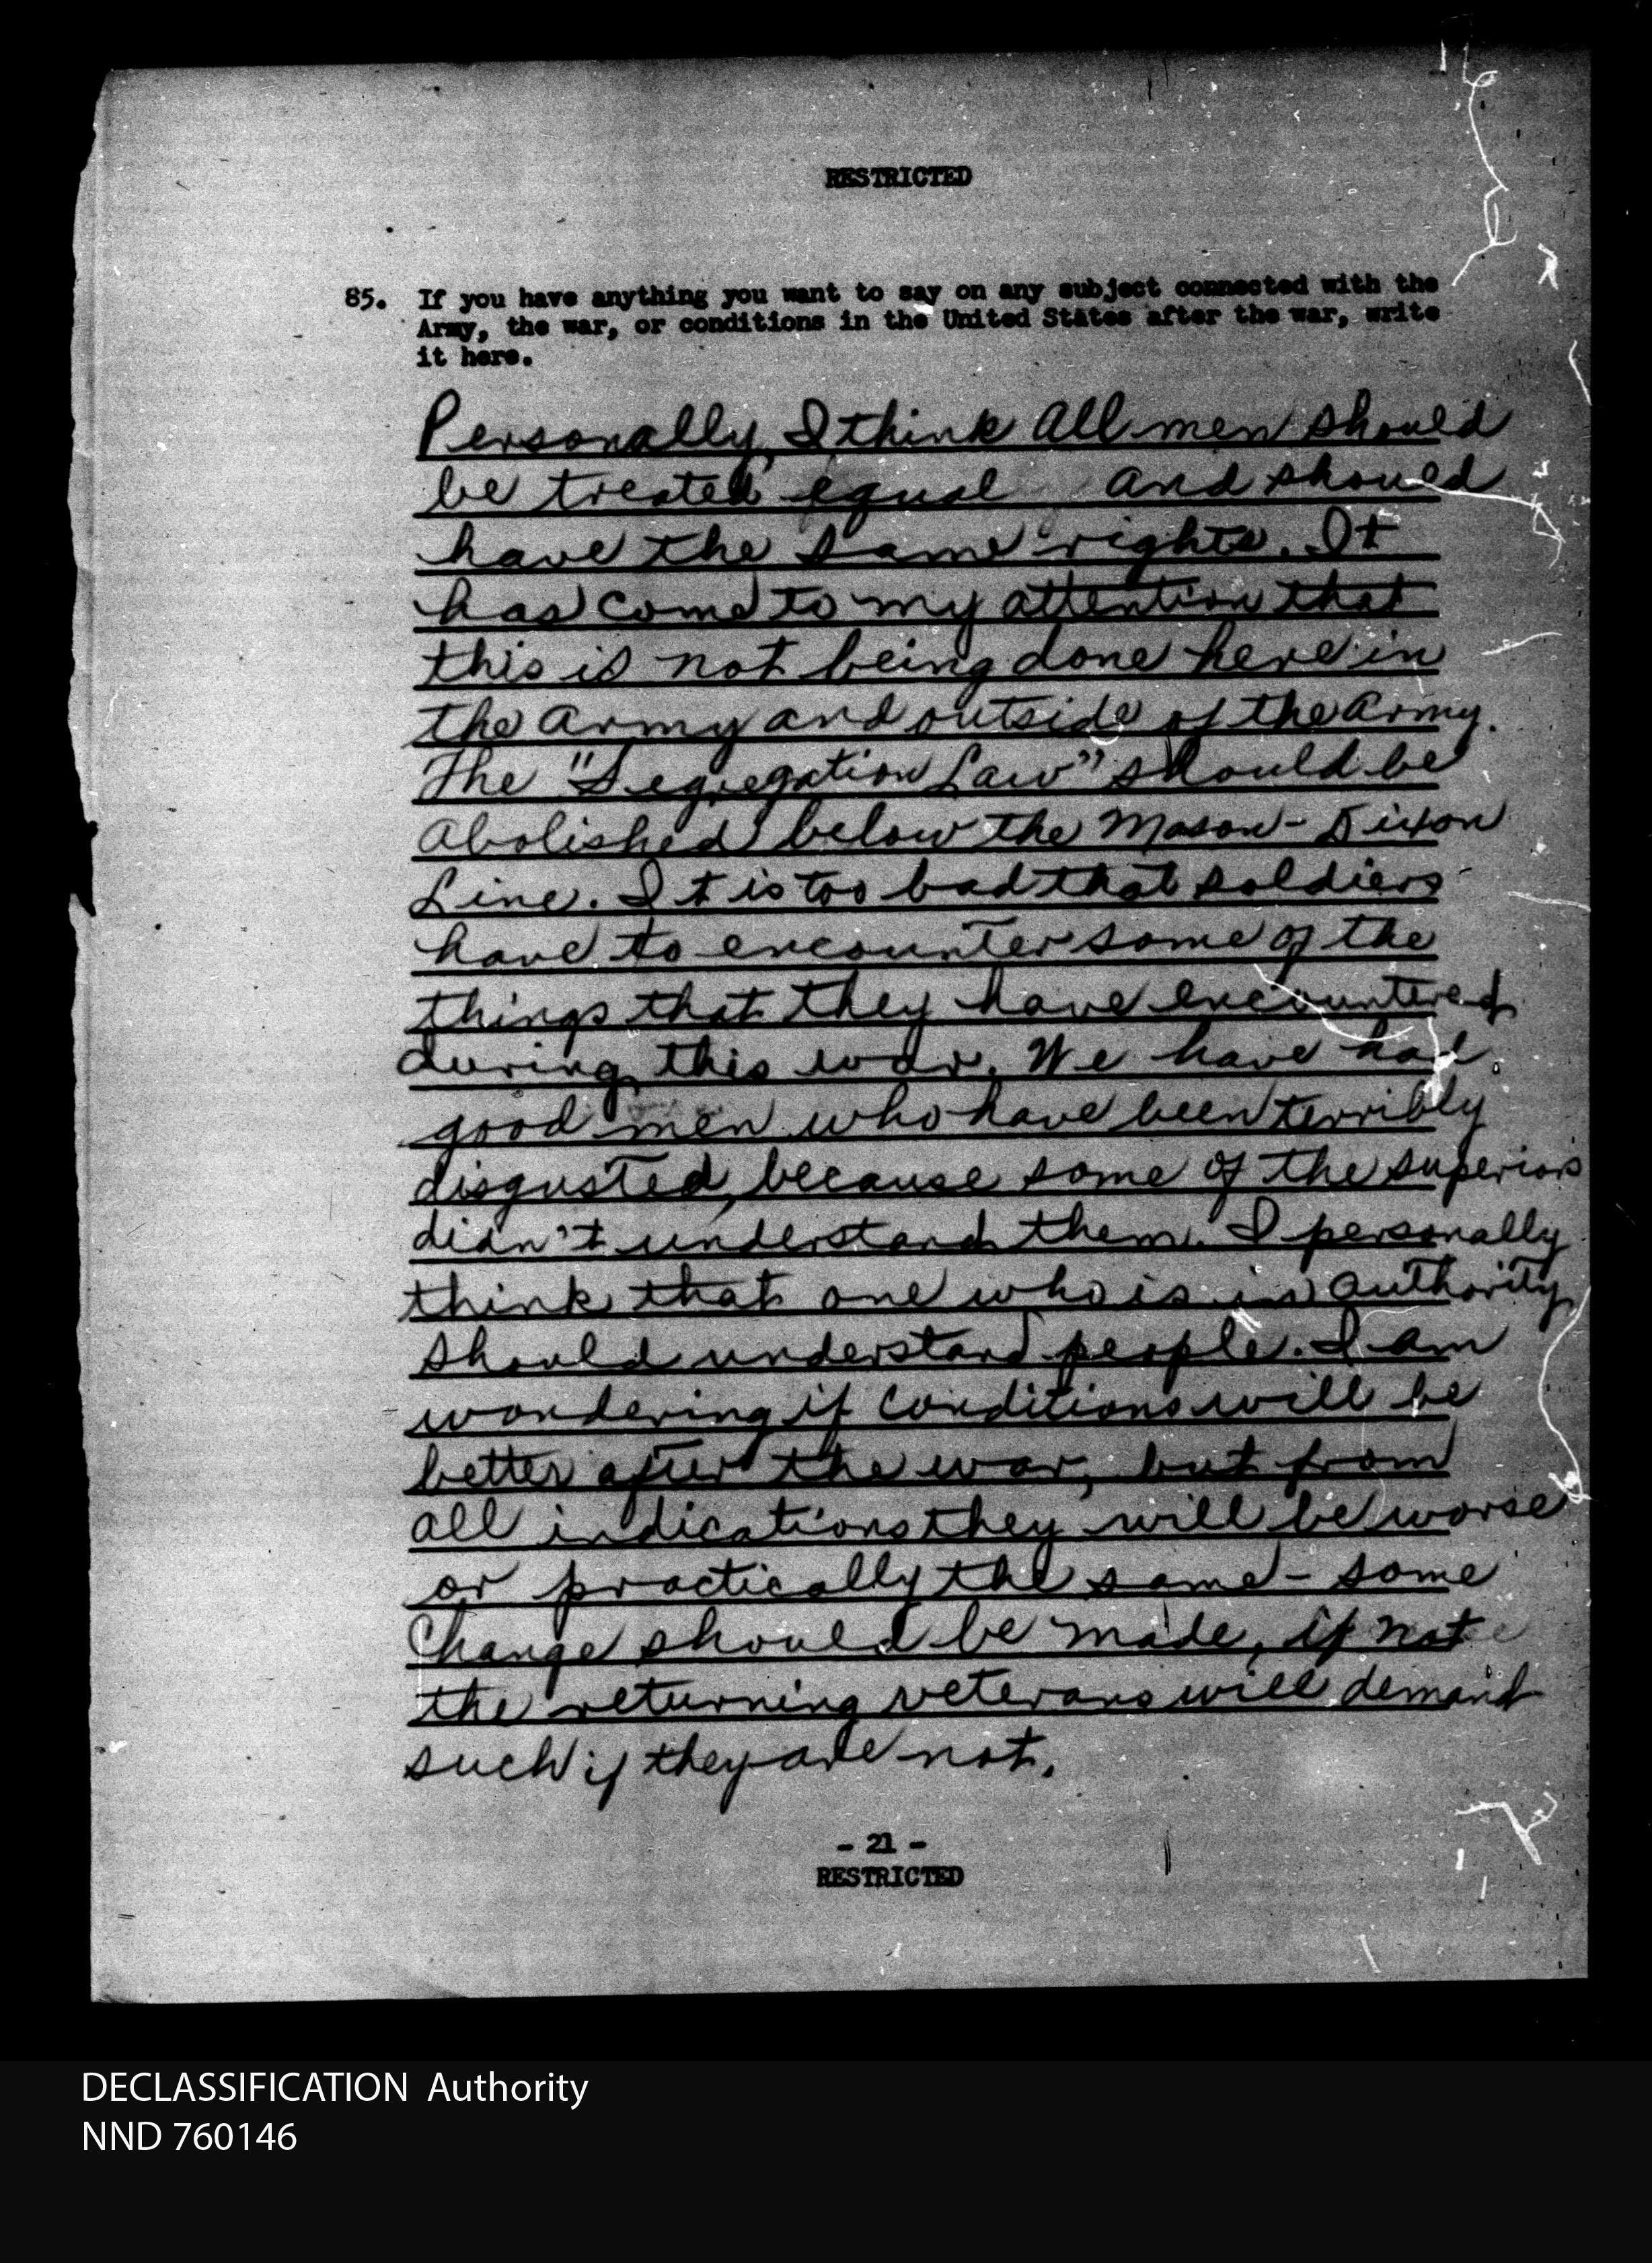 RESTRICTED
85. If you have anything you want to say on any subject connected with the
Army, the war, or conditions in the United States after the war, write
it here.
Personally, I think all men should
be treated equal and should
have the same rights. It
has come to my attention that
this is not being done here in
the army and outside of the army.
The "Segregation Law" should be
abolished below the Mason-Dixon
Line. It is too bad that soldiers
have to encounter some of the
things that they have encountered
during this war. We have had
good men who have been terribly
disgusted, because some of the superiors
didn't understand them. I personally
think that one who is in authority,
should understand people. I am
wondering if conditions will be
better after the war, but from
all indications they will be worse
or practically the same - some
change should be made, if not
the returning veterans will demand
such if they are not.
- 21 -
RESTRICTED
DECLASSIFICATION Authority
NND 760146